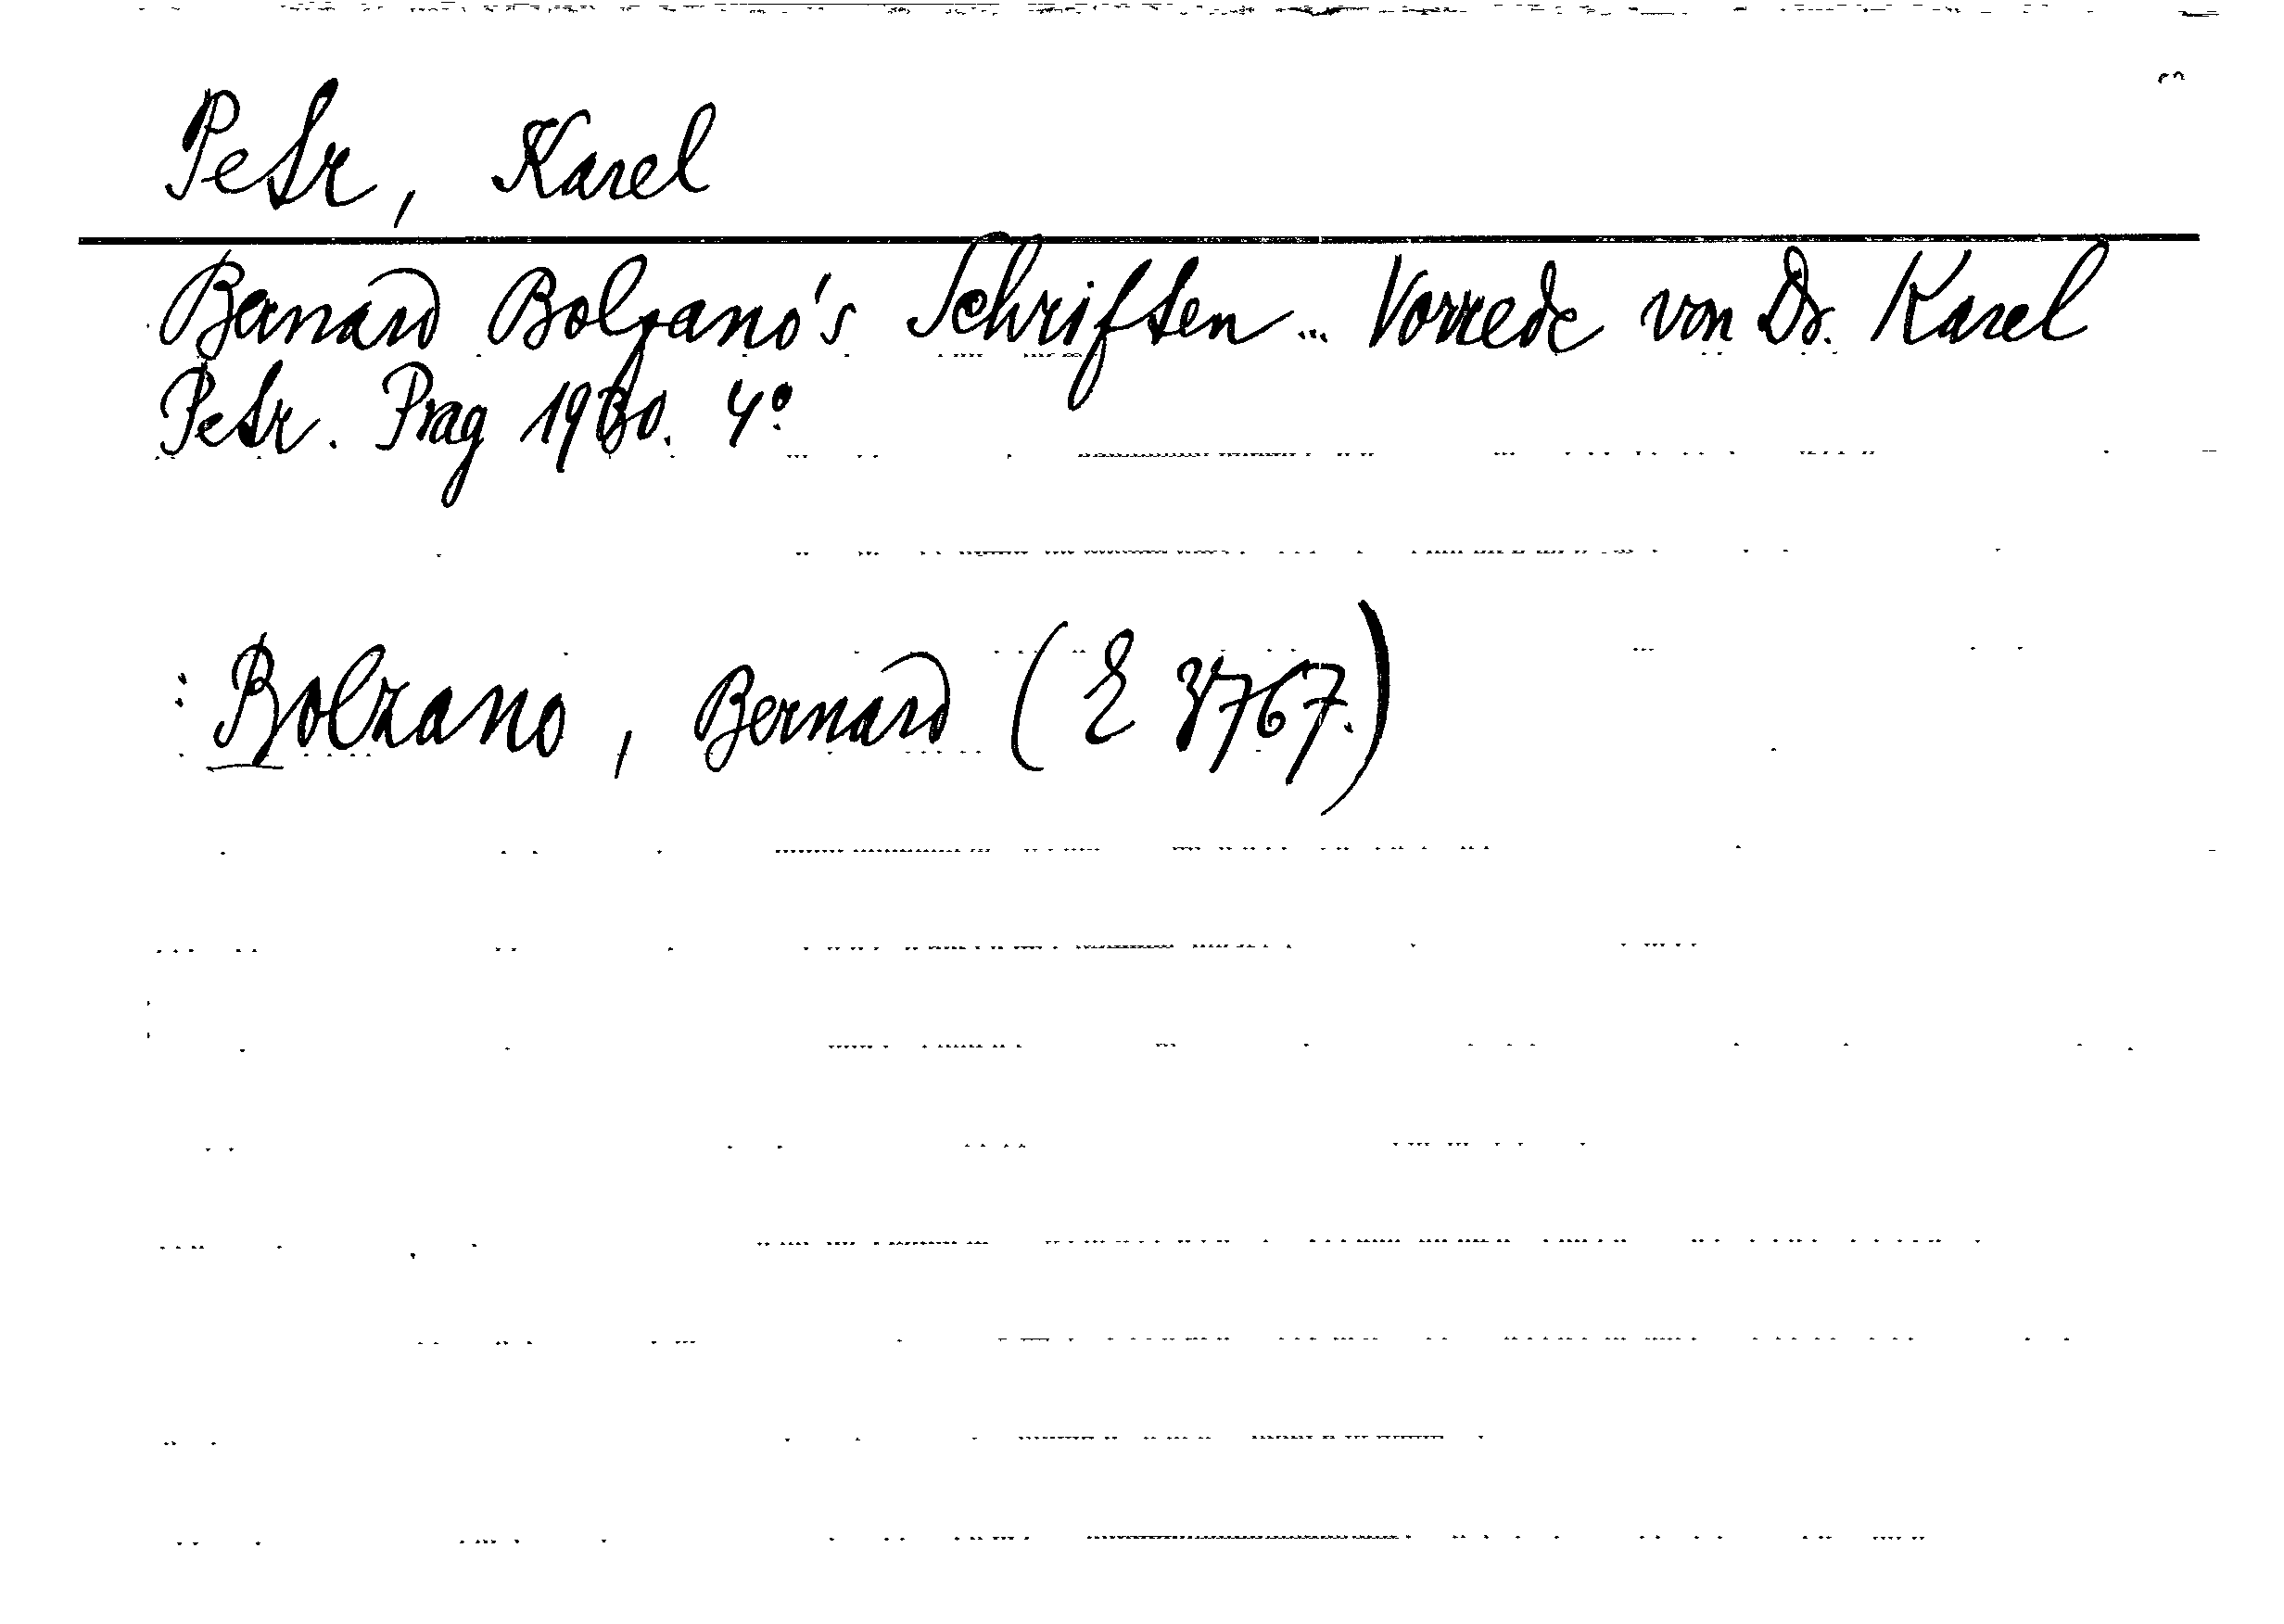 Petr, Karel
Bernard Bolzano's Schriften... Vorrede von Dr. Karel
Petr. Prag 1930. 4°.
: Bolzano, Bernard (E 3767.)